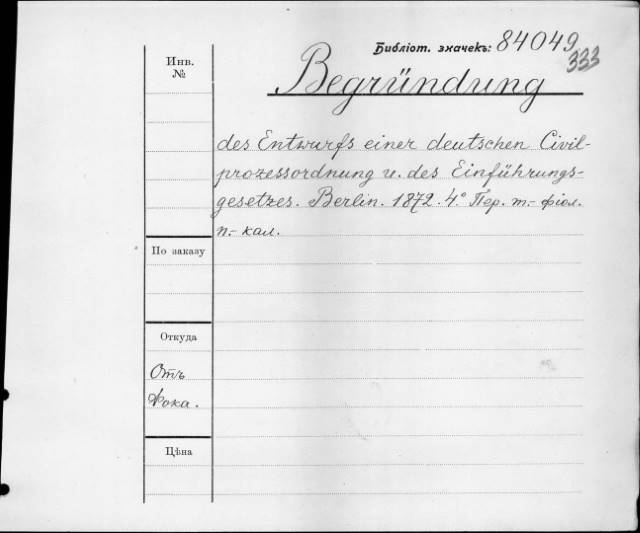 Библіот. значекъ: 84049
333
Инв.
№
Begründung
des Entwurfs einer deutschen Civil-
prozessordnung u. des Einführungs-
gesetzes. Berlin. 1872. 4° Пер. т.- фіол.
п.- кал.
По заказу
Откуда
Отъ
Фока.
Цѣна